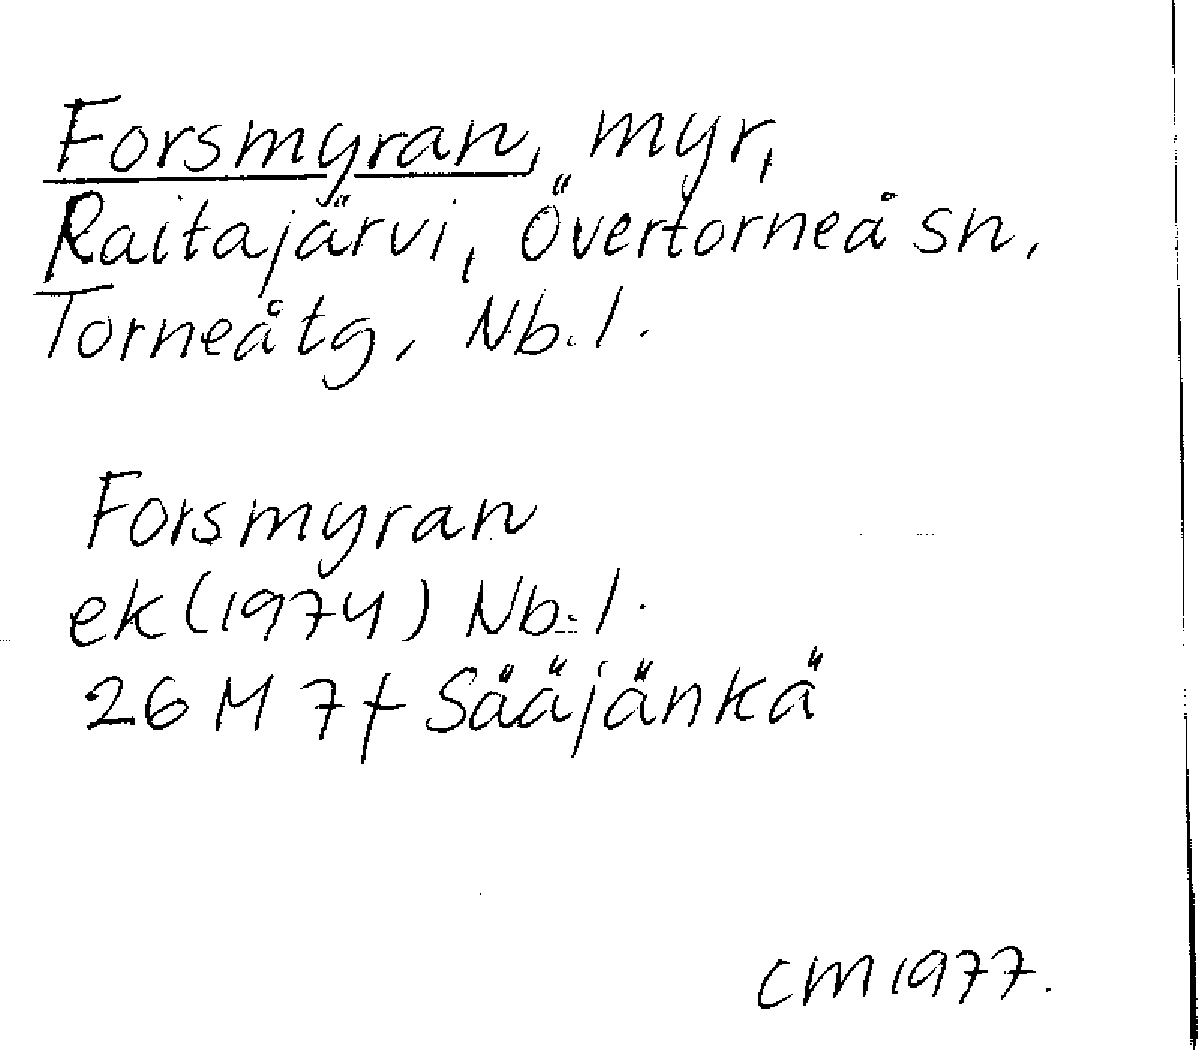 Forsmyran, myr,
Raitajärvi, Övertorneå sn,
Torneå tg, Nb. l.
Forsmyran
ek (1974) Nb. l.
26 M 7f Sääjänkä
CM 1977.